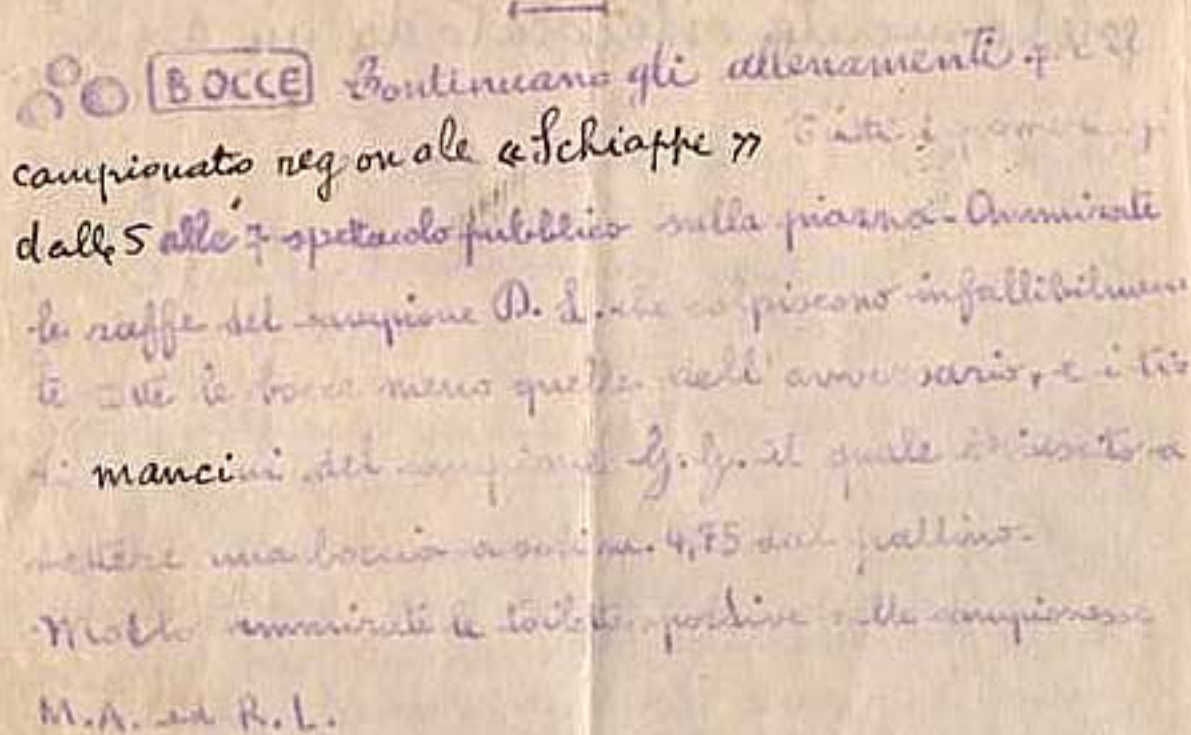 BOCCE Continuano gli allenamenti.
campionato regionale «Schiappe» Tutti i
dalle 5 alle 7 spettacolo pubblico sulla piazza - Ammirate
le raffe del campione D. L. che colpiscono infallibilmen
te tutte le bocce meno quelle dell'avversario, e i tiri
mancini del campione G. G. il quale è riuscito a
mettere una boccia a soli m. 4,75 dal pallino.
Molto ammirate le toilette sportive delle campionesse
M.A. ed R.L.